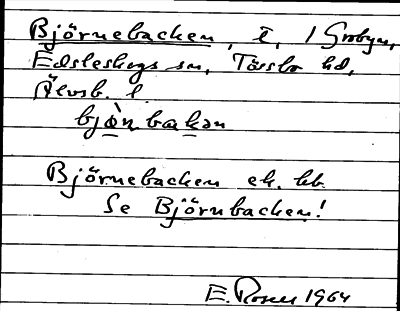 Björnebacken, t, i Grobyn,
Edsleskogs sn, Tössbo hd,
Älvsb. l.
bjö̀nbakən
Björnebacken ek. kb
Se Björnbacken!
E. Rosell 1964